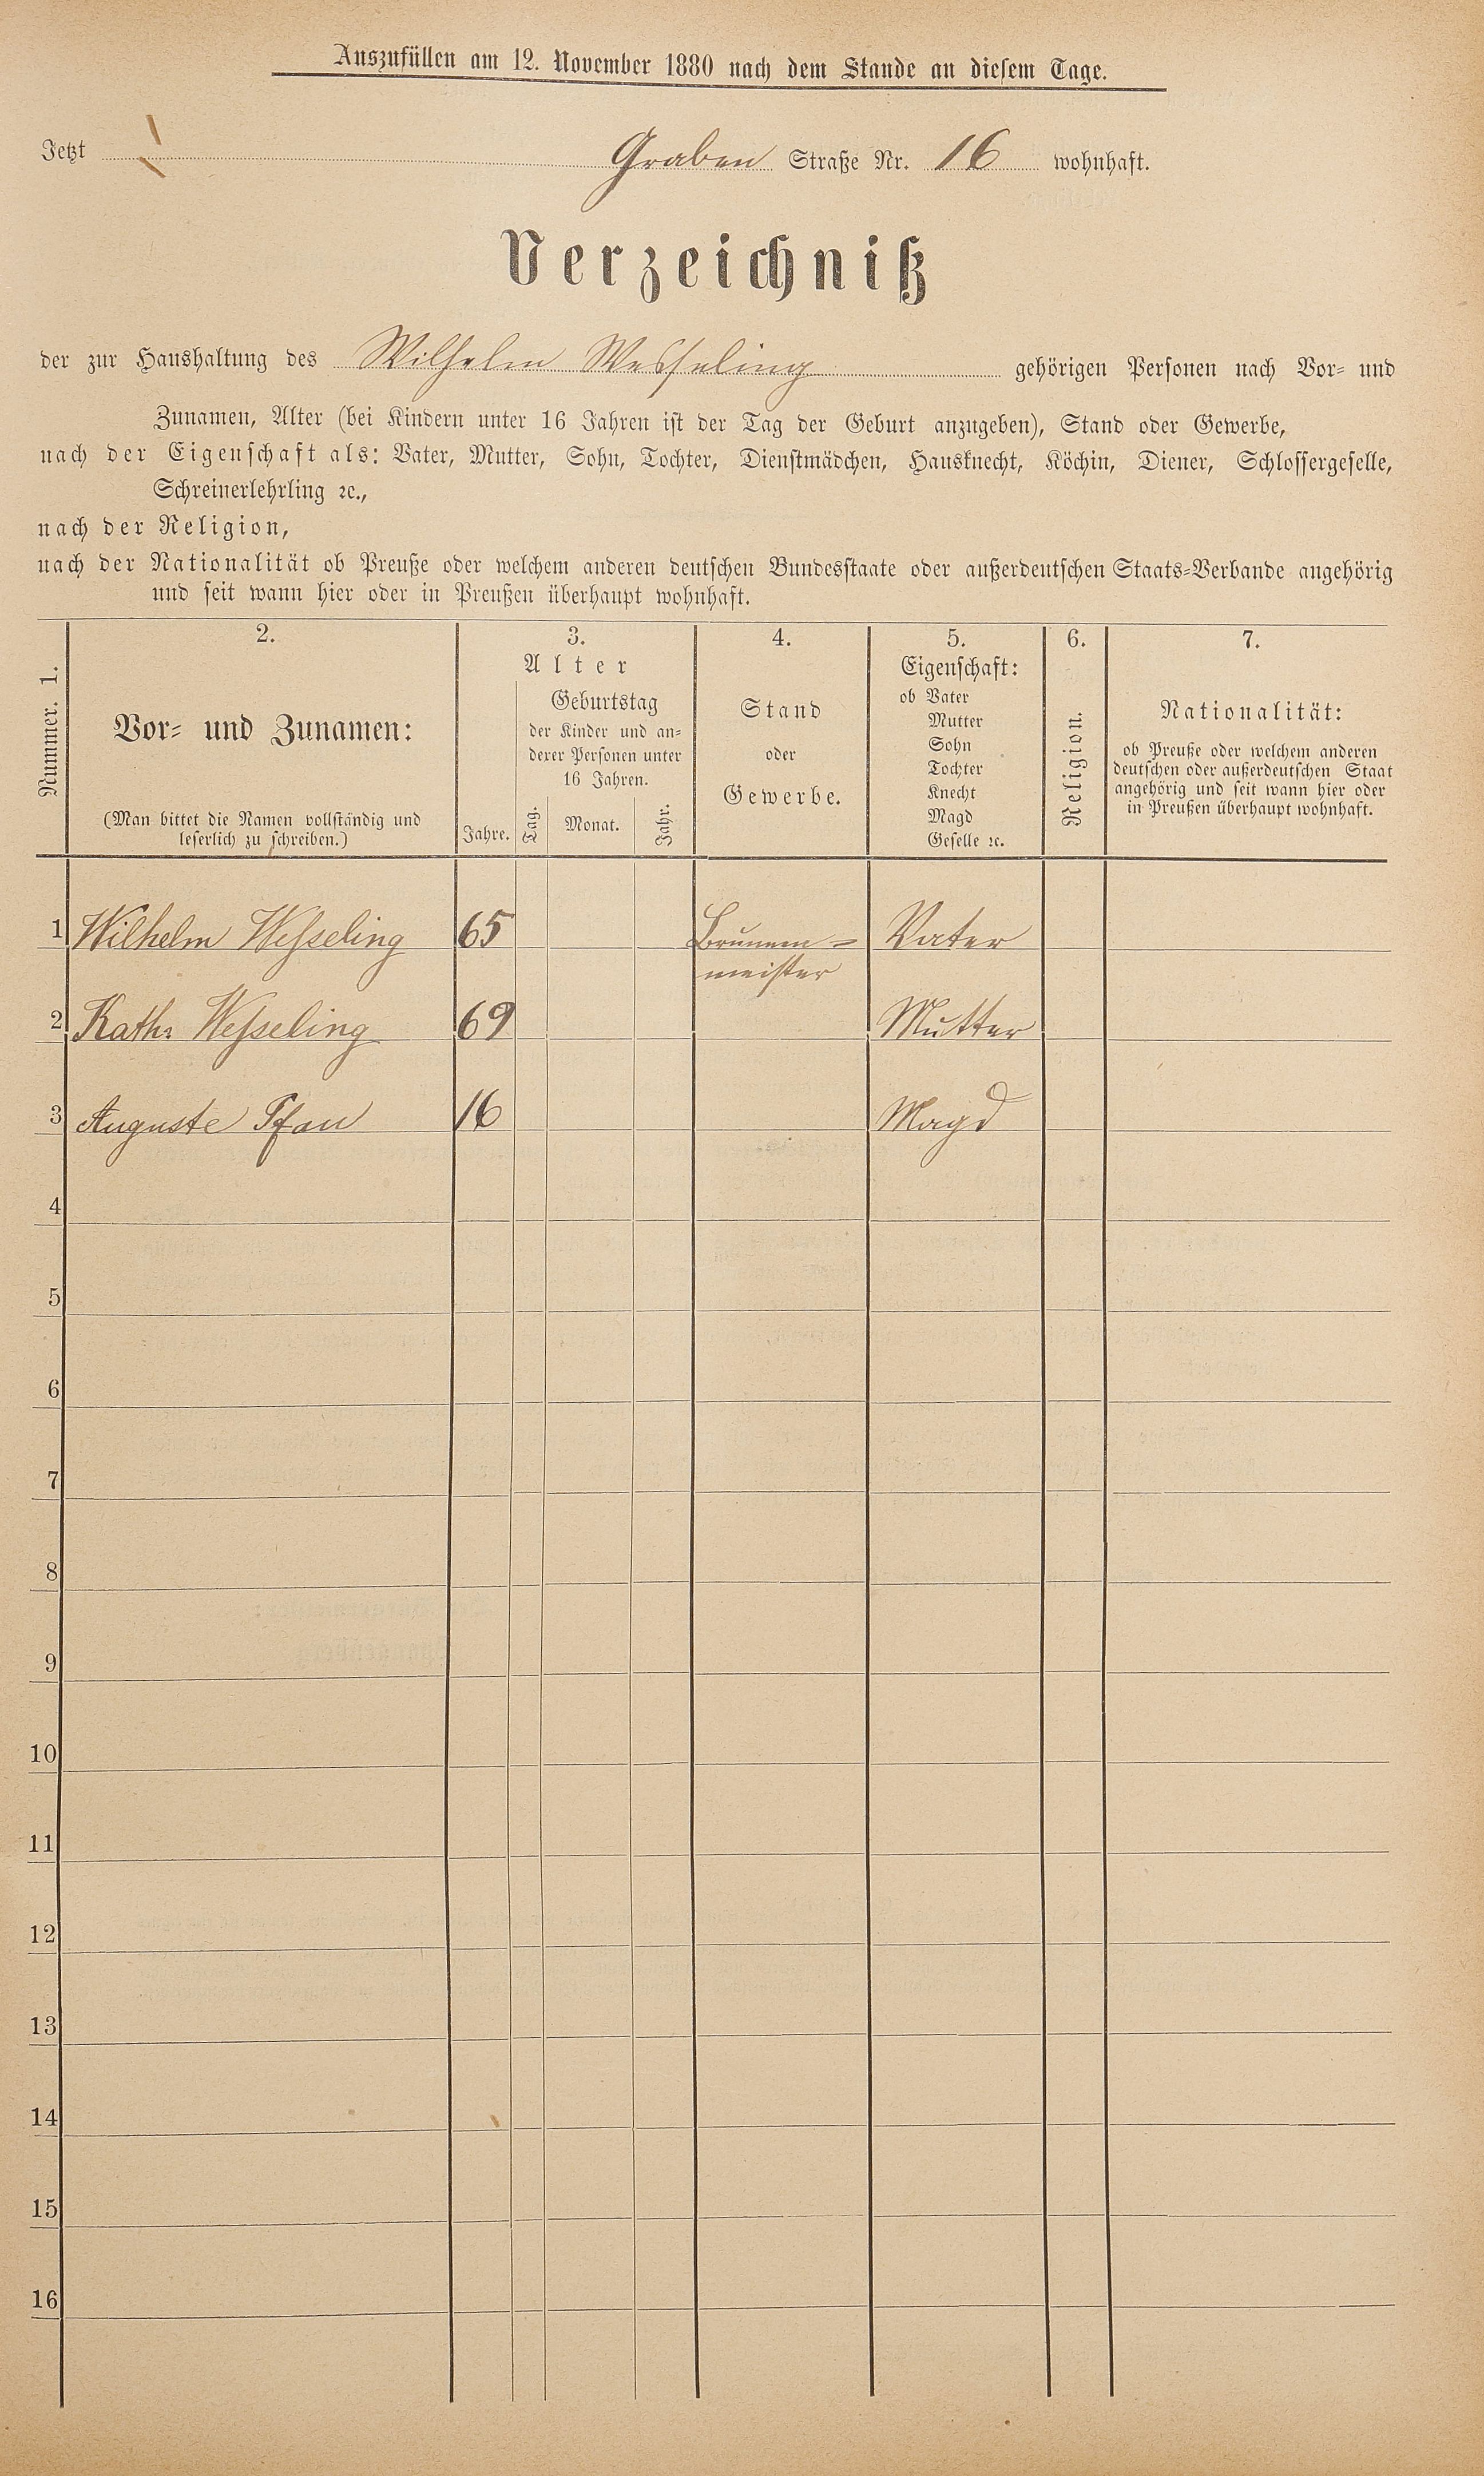 Auszufüllen am 12. November 1880 nach dem Stande an diesem Tage.
Jetzt Graben Straße Nr. 16 wohnhaft.
Verzeichniß
der zur Haushaltung des Wilhelm Wesseling gehörigen Personen nach Vor- und
Zunamen, Alter (bei Kindern unter 16 Jahren ist der Tag der Geburt anzugeben), Stand oder Gewerbe,
nach der Eigenschaft als: Vater, Mutter, Sohn, Tochter, Dienstmädchen, Hausknecht, Köchin, Diener, Schlossergeselle,
Schreinerlehrling ꝛc.,
nach der Religion,
nach der Nationalität ob Preuße oder welchem anderen deutschen Bundesstaate oder außerdeutschen Staats-Verbande angehörig
und seit wann hier oder in Preußen überhaupt wohnhaft.
Nummer. 1.
2.
Vor- und Zunamen:
(Man bittet die Namen vollständig und
leserlich zu schreiben.)
3.
Alter
Jahre.
Geburtstag
der Kinder und an-
derer Personen unter
16 Jahren.
Tag. Monat. Jahr.
4.
Stand
oder
Gewerbe.
5.
Eigenschaft:
ob Vater
Mutter
Sohn
Tochter
Knecht
Magd
Geselle ꝛc.
6.
Religion.
7.
Nationalität:
ob Preuße oder welchem anderen
deutschen oder außerdeutschen Staat
angehörig und seit wann hier oder
in Preußen überhaupt wohnhaft.
1 Wilhelm Weſseling 65 Brunnen= Vater
meister
2 Kath. Weſseling 69 Mutter
3 Auguste Pfau 16 Magd
4
5
6
7
8
9
10
11
12
13
14
15
16